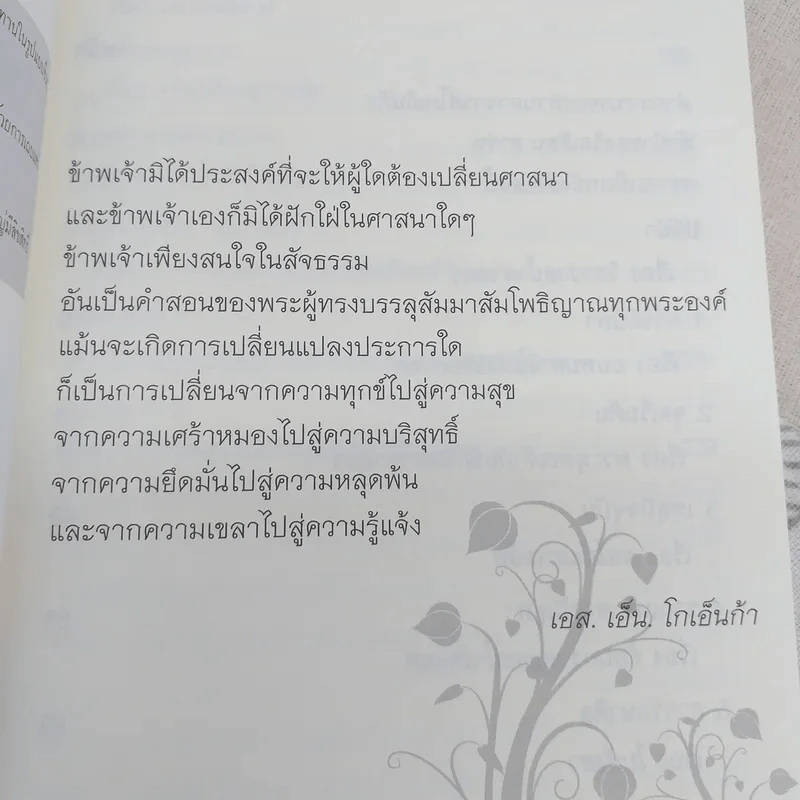 ข้าพเจ้ามิได้ประสงค์ที่จะให้ผู้ใดต้องเปลี่ยนศาสนา
และข้าพเจ้าเองก็มิได้ฝักใฝ่ในศาสนาใดๆ
ข้าพเจ้าเพียงสนใจในสัจธรรม
อันเป็นคำสอนของพระผู้ทรงบรรลุสัมมาสัมโพธิญาณทุกพระองค์
แม้นจะเกิดการเปลี่ยนแปลงประการใด
ก็เป็นการเปลี่ยนจากความทุกข์ไปสู่ความสุข
จากความเศร้าหมองไปสู่ความบริสุทธิ์
จากความยึดมั่นไปสู่ความหลุดพ้น
และจากความเขลาไปสู่ความรู้แจ้ง
เอส. เอ็น. โกเอ็นก้า